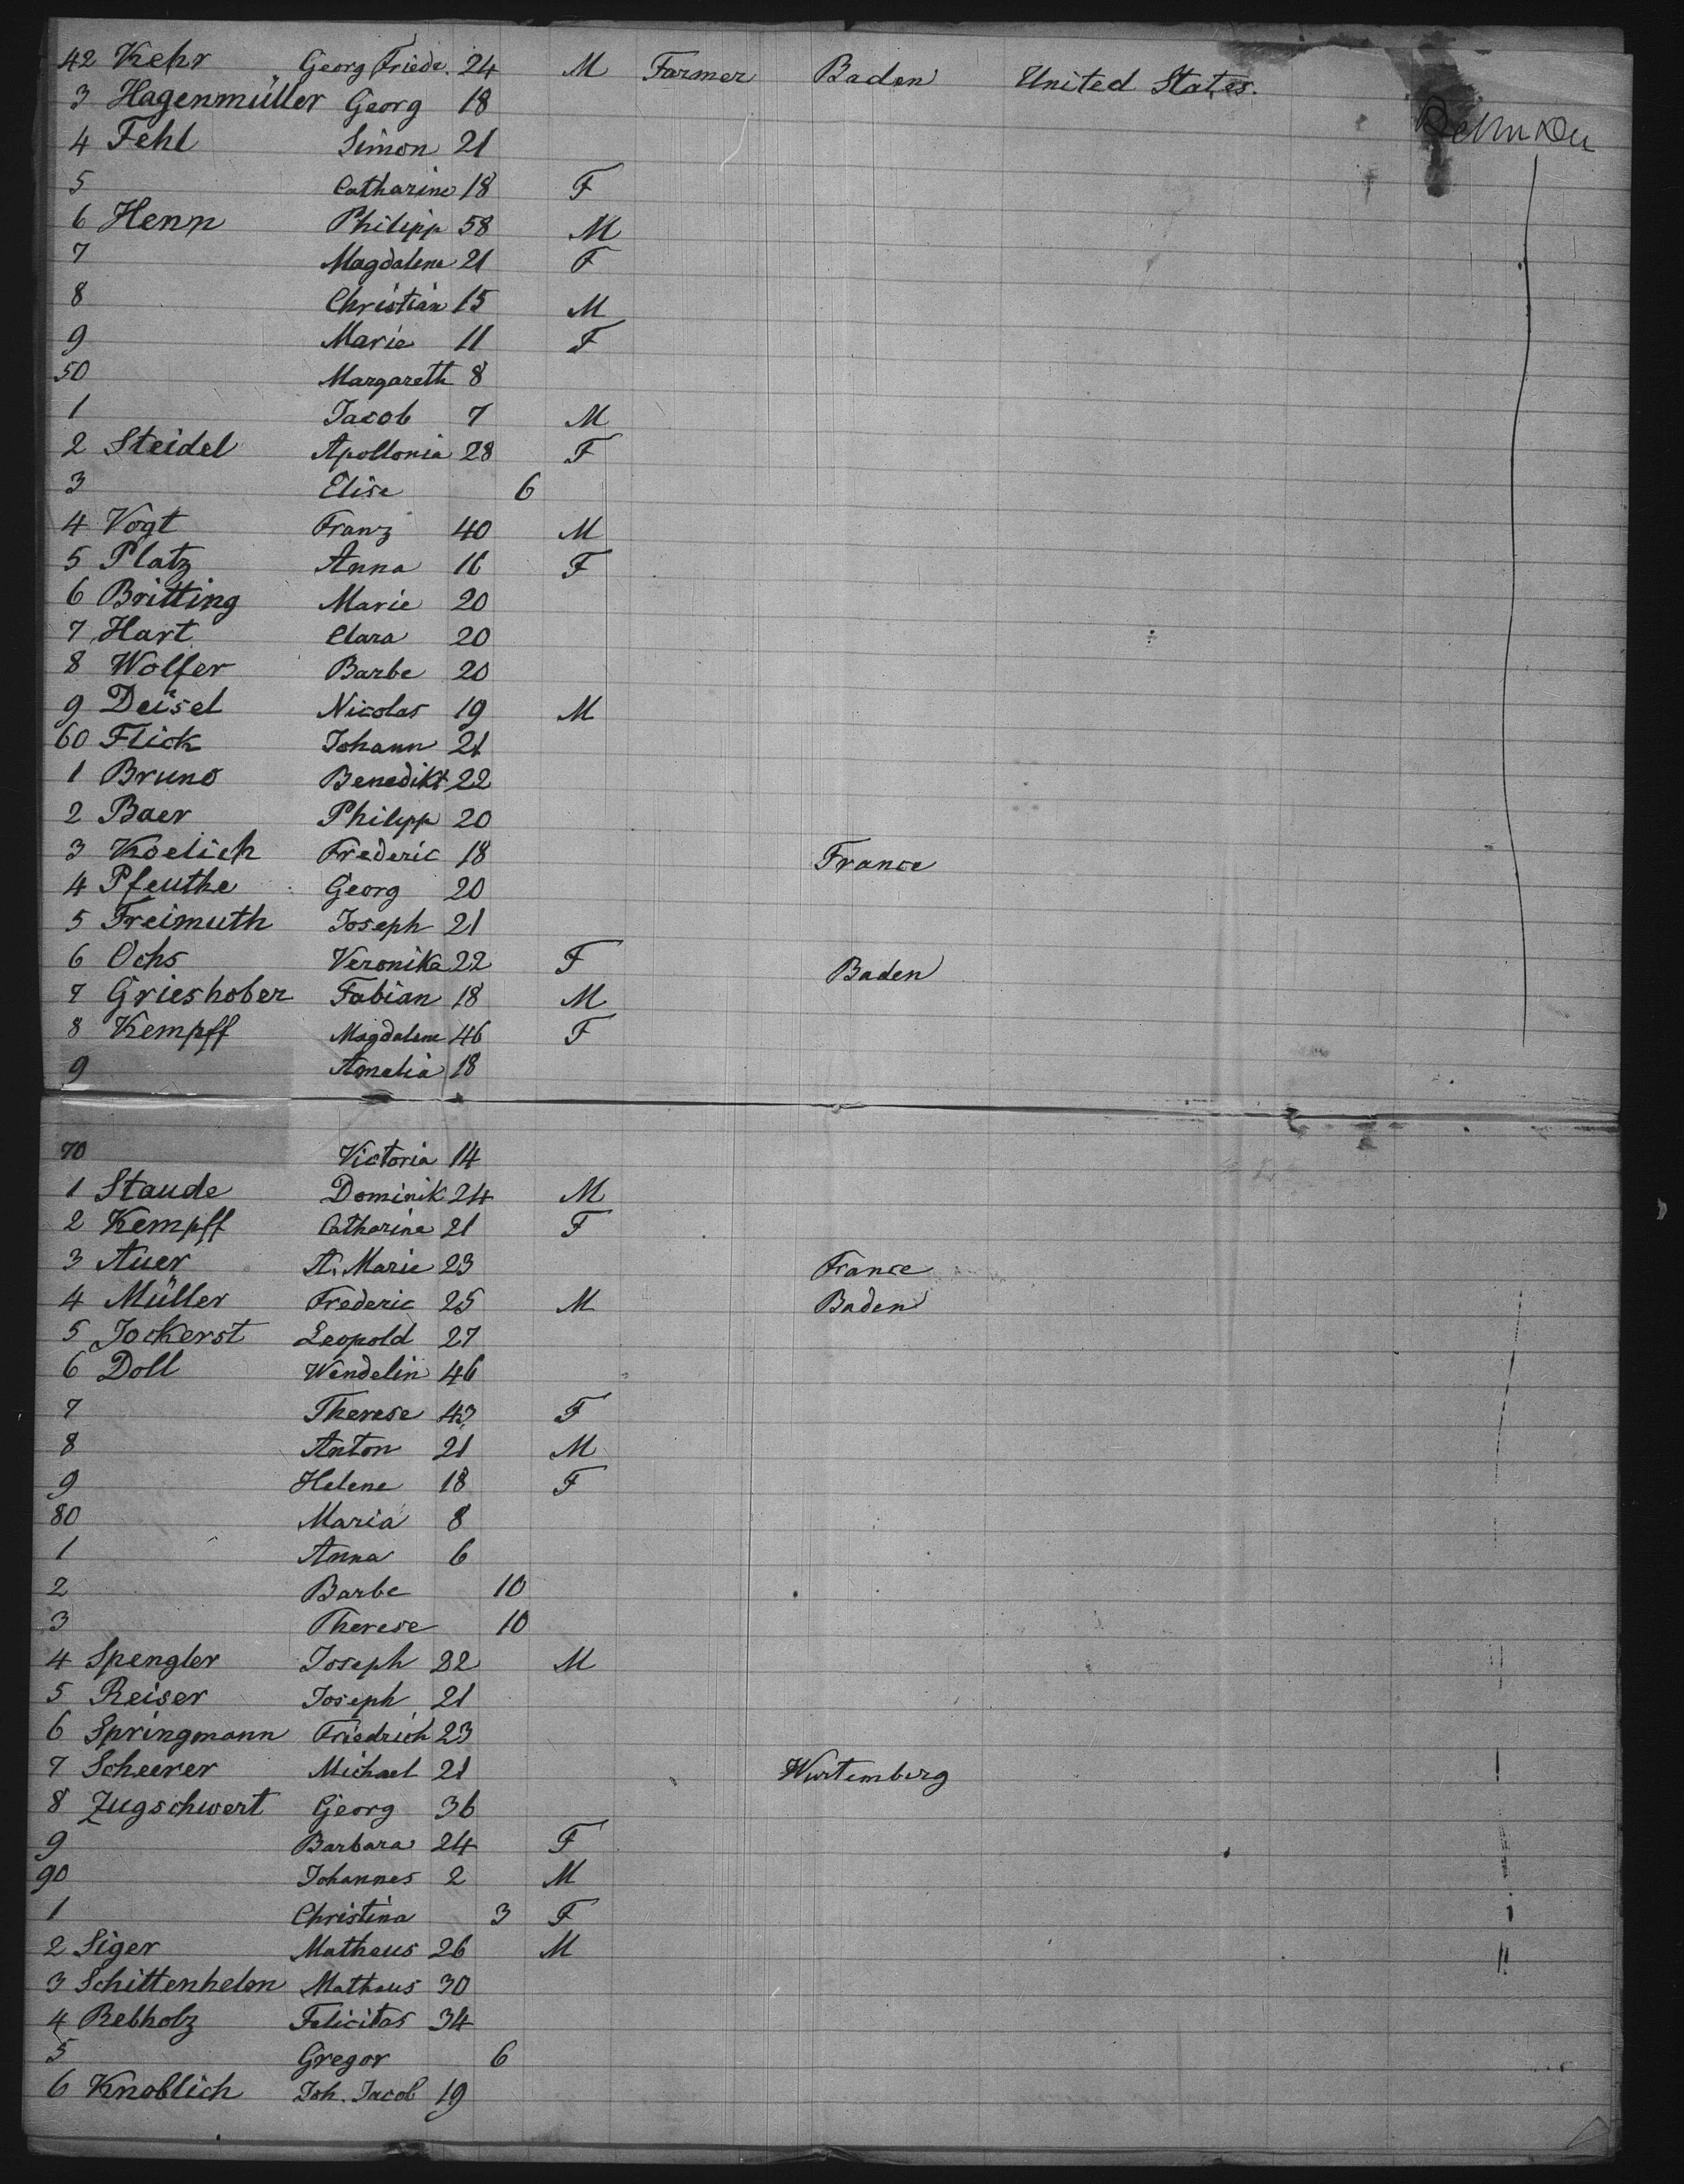 42 Kehr Georg Friedr. 24 M Farmer Baden United States.
3 Hagenmüller Georg 18
4 Fehl Simon 21
5 Catharine 18 F
6 Henn Philipp 58 M
7 Magdalena 21 F
8 Christian 15 M
9 Marie 11 F
50 Margareth 8
1 Jacob 7 M
2 Steidel Apollonia 28 F
3 Elise 6
4 Vogt Franz 40 M
5 Platz Anna 16 F
6 Britting Marie 20
7 Hart Clara 20
8 Wolfer Barbe 20
9 Deisel Nicolas 19 M
60 Flick Johann 21
1 Bruno Benedikt 22
2 Baer Philipp 20
3 Koelich Frederic 18 France
4 Pfeuthe Georg 20
5 Freimuth Joseph 21
6 Ochs Veronika 22 F Baden
7 Grieshober Fabian 18 M
8 Kempff Magdalene 46 F
9 Amalia 18
70 Victoria 14
1 Staude Dominik 24 M
2 Kempff Catharine 21 F
3 Auer A. Marie 23 France
4 Müller Frederic 25 M Baden
5 Jockerst Leopold 27
6 Doll Wendelin 46
7 Therese 43 F
8 Anton 21 M
9 Helene 18 F
80 Maria 8
1 Anna 6
2 Barbe 10
3 Therese 10
4 Spengler Joseph 22 M
5 Reiser Joseph 21
6 Springmann Friedrich 23
7 Scheerer Michael 21 Wurtemberg
8 Zugschwert Georg 36
9 Barbara 24 F
90 Johannes 2 M
1 Christina 3 F
2 Siger Matheus 26 M
3 Schittenhelm Mathaus 30
4 Rebholz Felicitas 34
5 Gregor 6
6 Knoblich Joh. Jacob 19